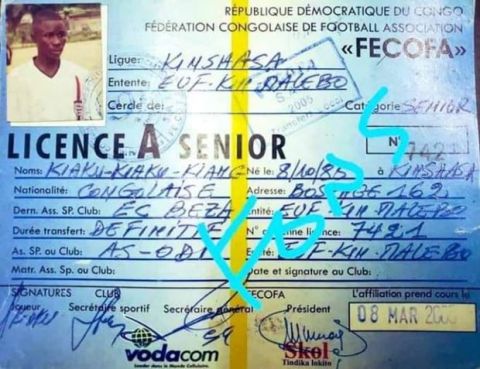 RÉPUBLIQUE DÉMOCRATIQUE DU CONGO
FÉDÉRATION CONGOLAISE DE FOOTBALL ASSOCIATION
«FECOFA»
Ligue: KINSHASA
Entente: EUF-KIN-MALEBO
Cercle de: Catégorie SENIOR
2005
LICENCE A SENIOR N° 7421
Noms: KIAKU-KIAKU-KIANG Né le: 8/10/85 à KINSHASA
Nationalité: CONGOLAISE Adresse: 162
Dern. Ass. SP. Club: FC BEZA Entité: EUF-KIN-MALEBO
Durée transfert: DEFINITIF N° licence: 7421
As. SP. ou Club: AS- Entité: EUF-KIN-MALEBO
Matr. Ass. Sp. ou Club: Date et signature au Club:
SIGNATURES CLUB FECOFA L'affiliation prend cours le
Joueur Secrétaire sportif Secrétaire général Président
08 MAR
vodacom
Leader dans le Monde Cellulaire.
Skol
Tindika lokito